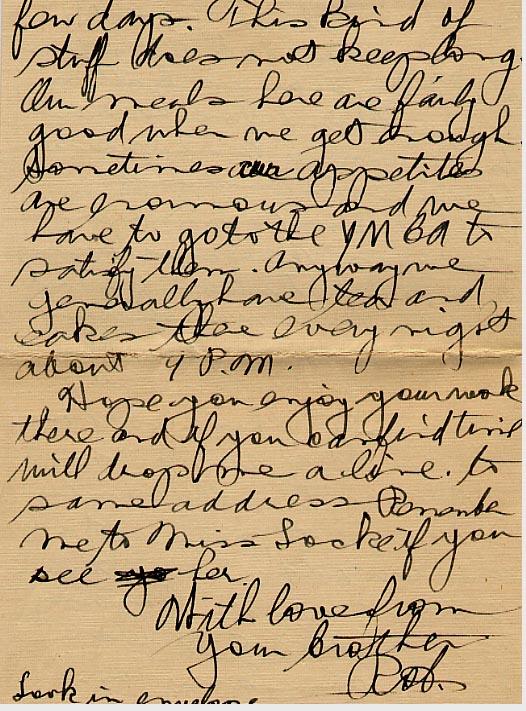 few days. This kind of
stuff does not keep long.
Our meals here are fairly
good when we get enough.
Sometimes our appetites
are enormous and we
have to go to the YMCA to
satisfy them. Anyway we
generally have tea and
cakes there every night
about 9 P.M.
Hope you enjoy your work
there and if you can find time
will drop me a line. to
same address Remember
me to Miss Locke if you
see her.
With love from
Your brother
Rob.
Look in envelope